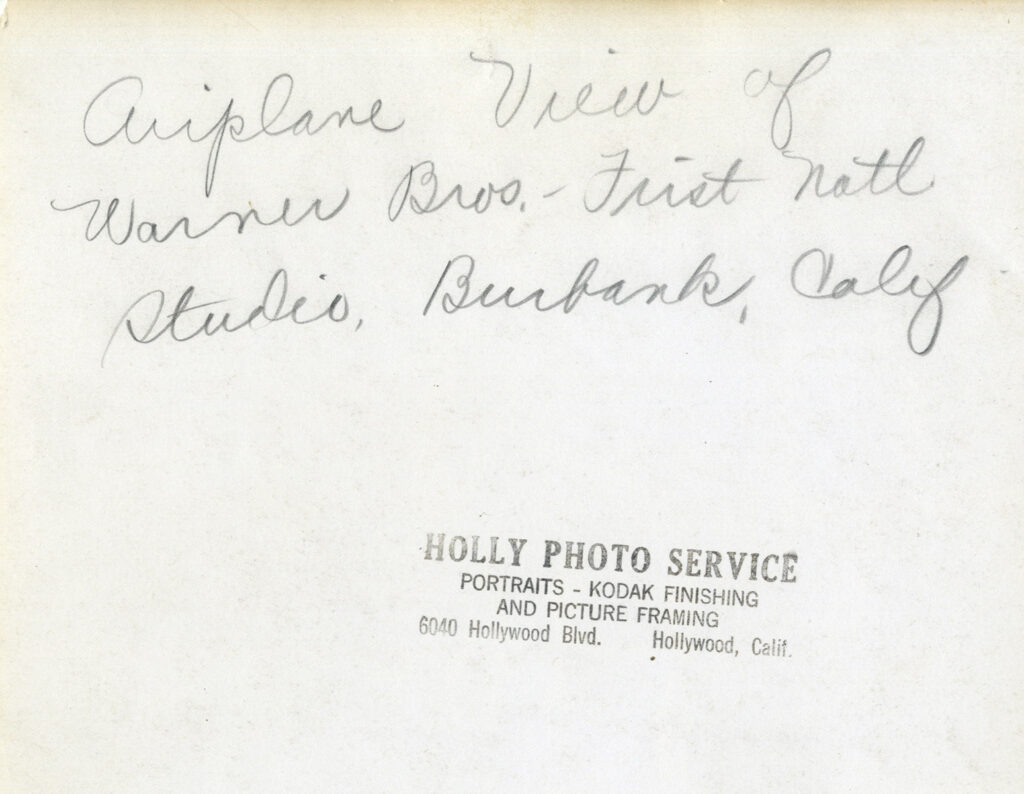 Airplane View of
Warner Bros. - First Natl
Studio, Burbank, Calif
HOLLY PHOTO SERVICE
PORTRAITS - KODAK FINISHING
AND PICTURE FRAMING
6040 Hollywood Blvd. Hollywood, Calif.